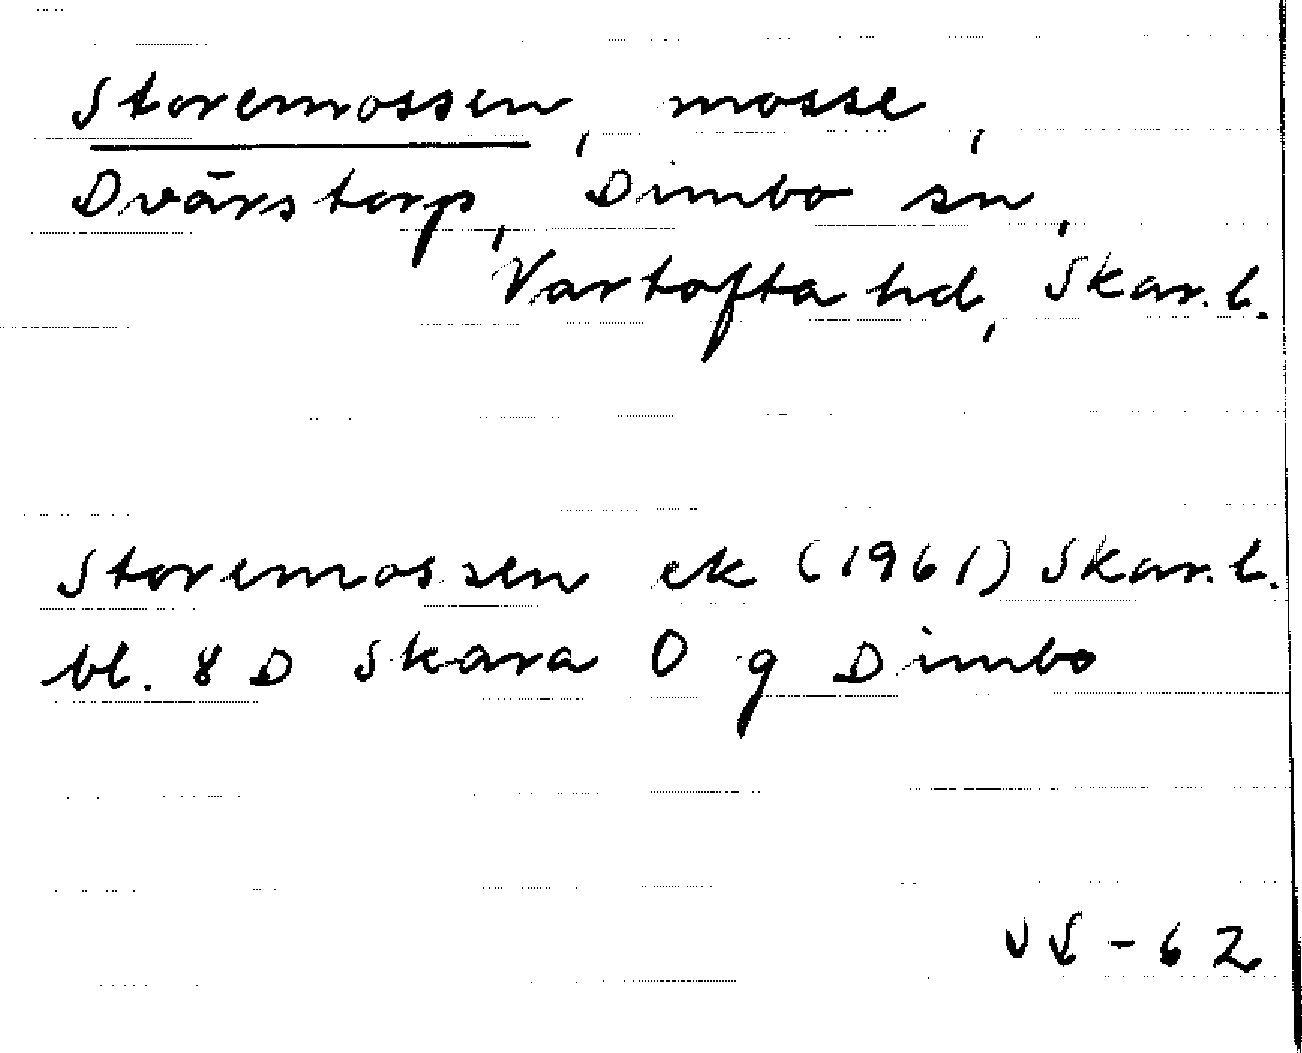 Storemossen, mosse,
Dvärstorp, Dimbo sn,
Vartofta hd, Skar. l.
Storemossen ek (1961) Skar. l.
bl. 8 D Skara O g Dimbo
-62